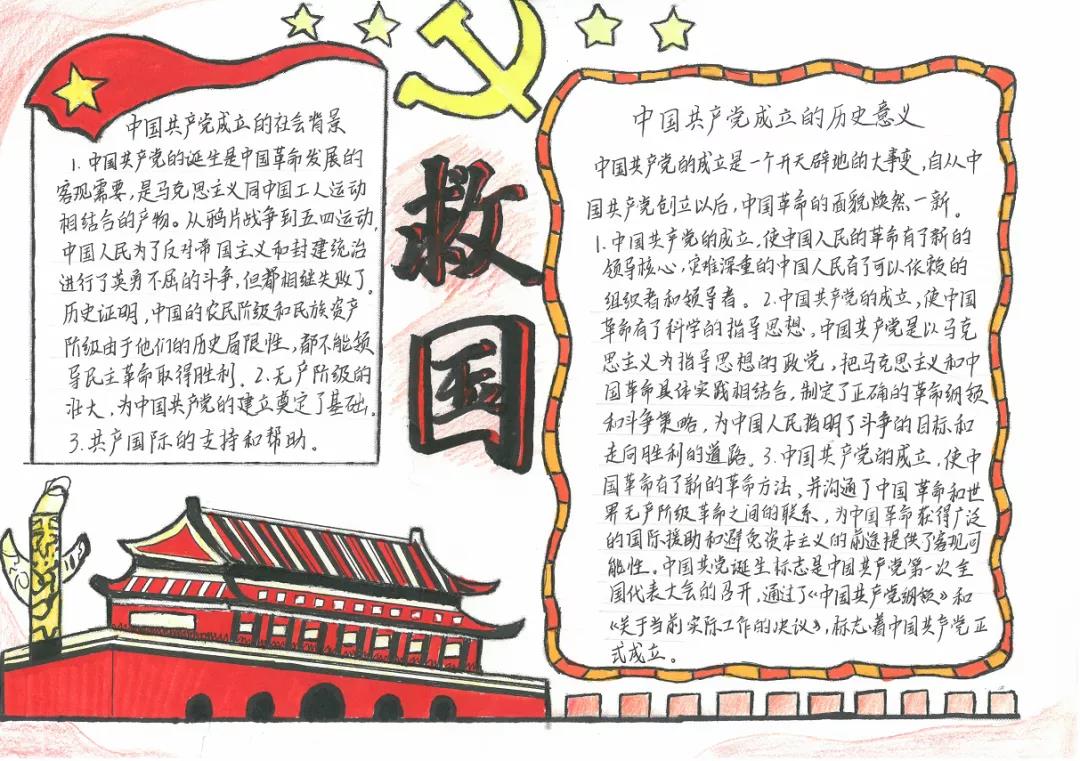 中国共产党成立的社会背景
1.中国共产党的诞生是中国革命发展的
客观需要,是马克思主义同中国工人运动
相结合的产物。从鸦片战争到五四运动,
中国人民为了反对帝国主义和封建统治
进行了英勇不屈的斗争,但都相继失败了。
历史证明,中国的农民阶级和民族资产
阶级由于他们的历史局限性,都不能领
导民主革命取得胜利。2.无产阶级的
壮大,为中国共产党的建立奠定了基础。
3.共产国际的支持和帮助。
救
国
中国共产党成立的历史意义
中国共产党的成立是一个开天辟地的大事变,自从中
国共产党创立以后,中国革命的面貌焕然一新。
1.中国共产党的成立,使中国人民的革命有了新的
领导核心,灾难深重的中国人民有了可以依赖的
组织者和领导者。2.中国共产党的成立,使中国
革命有了科学的指导思想。中国共产党是以马克
思主义为指导思想的政党,把马克思主义和中
国革命具体实践相结合,制定了正确的革命纲领
和斗争策略,为中国人民指明了斗争的目标和
走向胜利的道路。3.中国共产党的成立,使中
国革命有了新的革命方法,并沟通了中国革命和世
界无产阶级革命之间的联系,为中国革命获得广泛
的国际援助和避免资本主义的前途提供了客观可
能性。中国共党诞生标志是中国共产党第一次全
国代表大会的召开,通过了《中国共产党纲领》和
《关于当前实际工作的决议》,标志着中国共产党正
式成立。